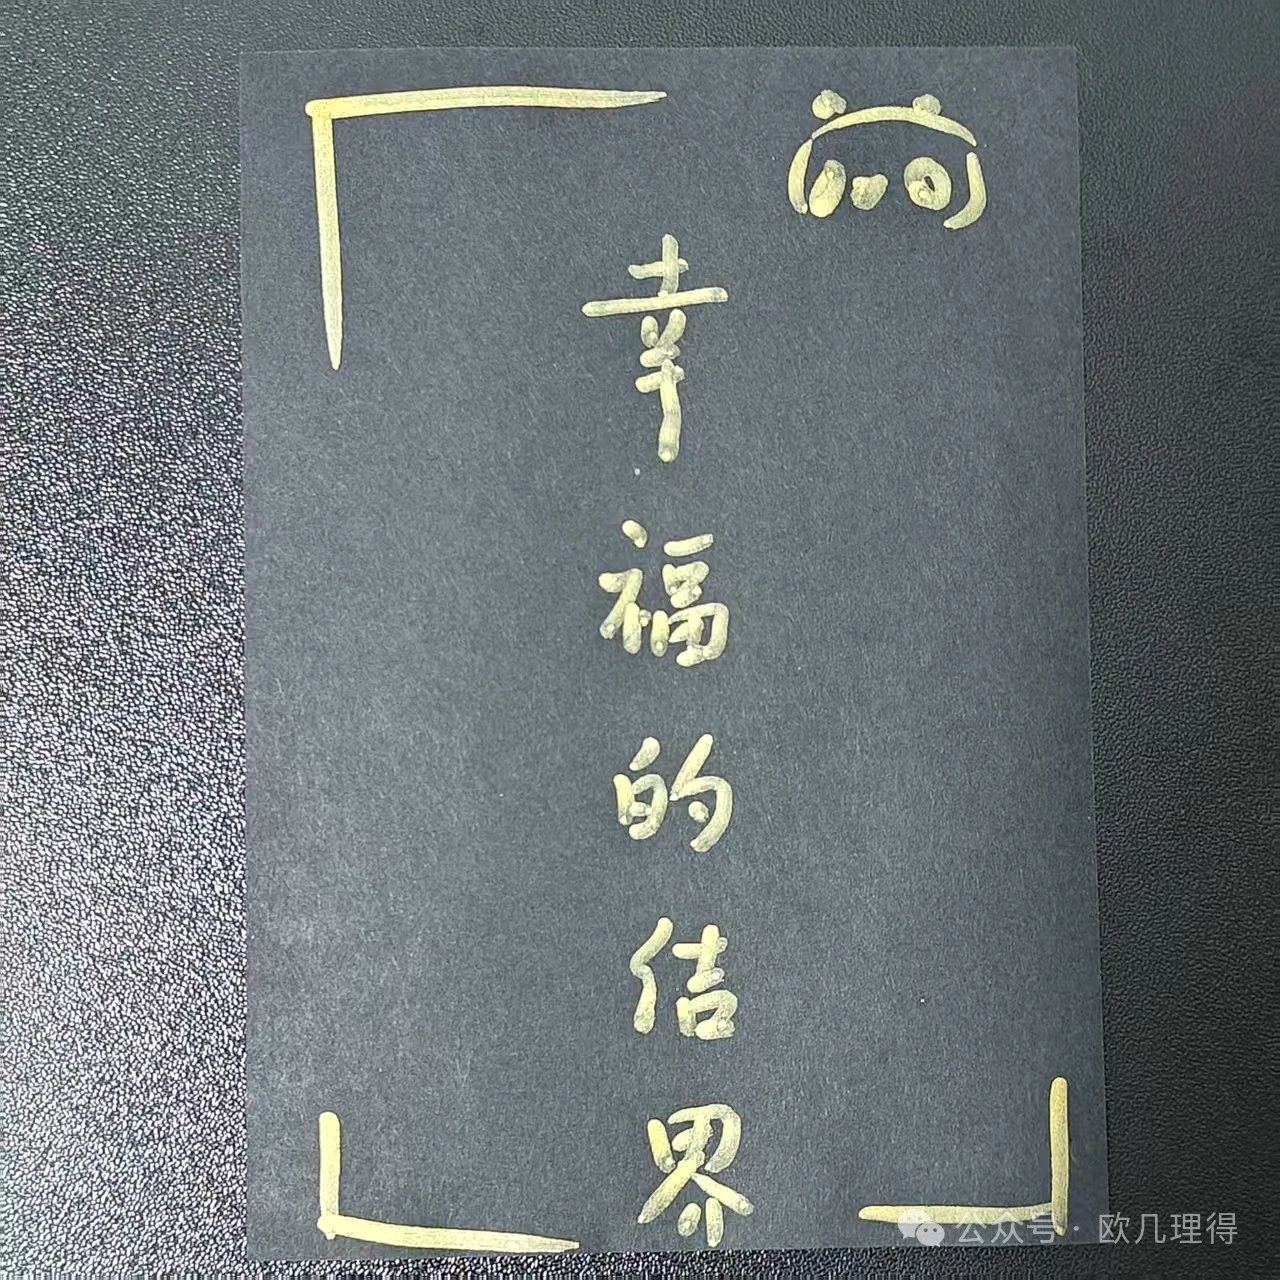 幸福的结界
公众号·欧几理得